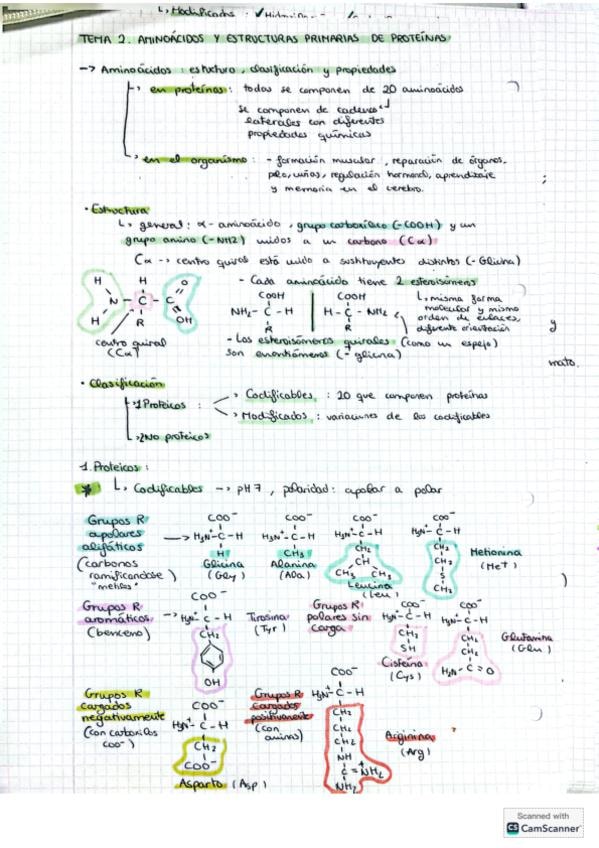 L, Modificados : ✓
TEMA 2. AMINOÁCIDOS Y ESTRUCTURAS PRIMARIAS DE PROTEÍNAS
-> Aminoácidos : estructura, clasificación y propiedades
en proteínas : todas se componen de 20 aminoácidos
se componen de cadenas
laterales con diferentes
propiedades químicas
en el organismo : - formación muscular, reparación de órganos,
pelo, uñas, regulación hormonal, aprendizaje
y memoria en el cerebro.
· Estructura
L, general : α - aminoácido, grupo carboxílico (-COOH) y un
grupo amino (-NH2) unidos a un carbono (Cα)
Cα --> centro quiral está unido a sustituyentes distintos (- Glicina)
- Cada aminoácido tiene 2 esteroisómeros
H H O
N - C - C
H R OH
centro quiral
(Cα)
COOH COOH
NH2 - C - H H - C - NH2
R R
L, misma forma
molecular y mismo
orden de enlaces,
diferente orientación
- Los esteroisómeros quirales (como un espejo)
son enantiómeros (- glicina)
y
mato.
· Clasificación
1 Proteicos :
Codificables : 20 que componen proteínas
Modificados : variaciones de los codificables
2 No proteicos
1. Proteicos :
L, Codificables --> pH 7, polaridad : apolar a polar
Grupos R
apolares
alifáticos
(carbonos
ramificandose
"metilos")
COO- COO- COO- COO-
H3N+ - C - H H3N+ - C - H H3N+ - C - H H3N+ - C - H
H CH3 CH2 CH2
CH CH2
CH3 CH3 S
CH3
Glicina
(Gly)
Alanina
(Ala)
Leucina
(Leu)
Metionina
(MeT)
Grupos R
aromáticos
(benceno)
COO-
H3N+ - C - H
CH2
OH
Tirosina
(Tyr)
Grupos R
polares sin
carga
COO-
H3N+ - C - H
CH2
SH
Cisteína
(Cys)
COO-
H3N+ - C - H
CH2
CH2
H2N - C = O
Glutamina
(Glu)
Grupos R
cargados
negativamente
(con carboxilos
COO-)
COO-
H3N+ - C - H
CH2
COO-
Asparto (Asp)
Grupos R
cargados
positivamente
(con
aminas)
COO-
H3N+ - C - H
CH2
CH2
CH2
NH
C = NH2
NH2
Arginina
(Arg)
Scanned with
CS CamScanner